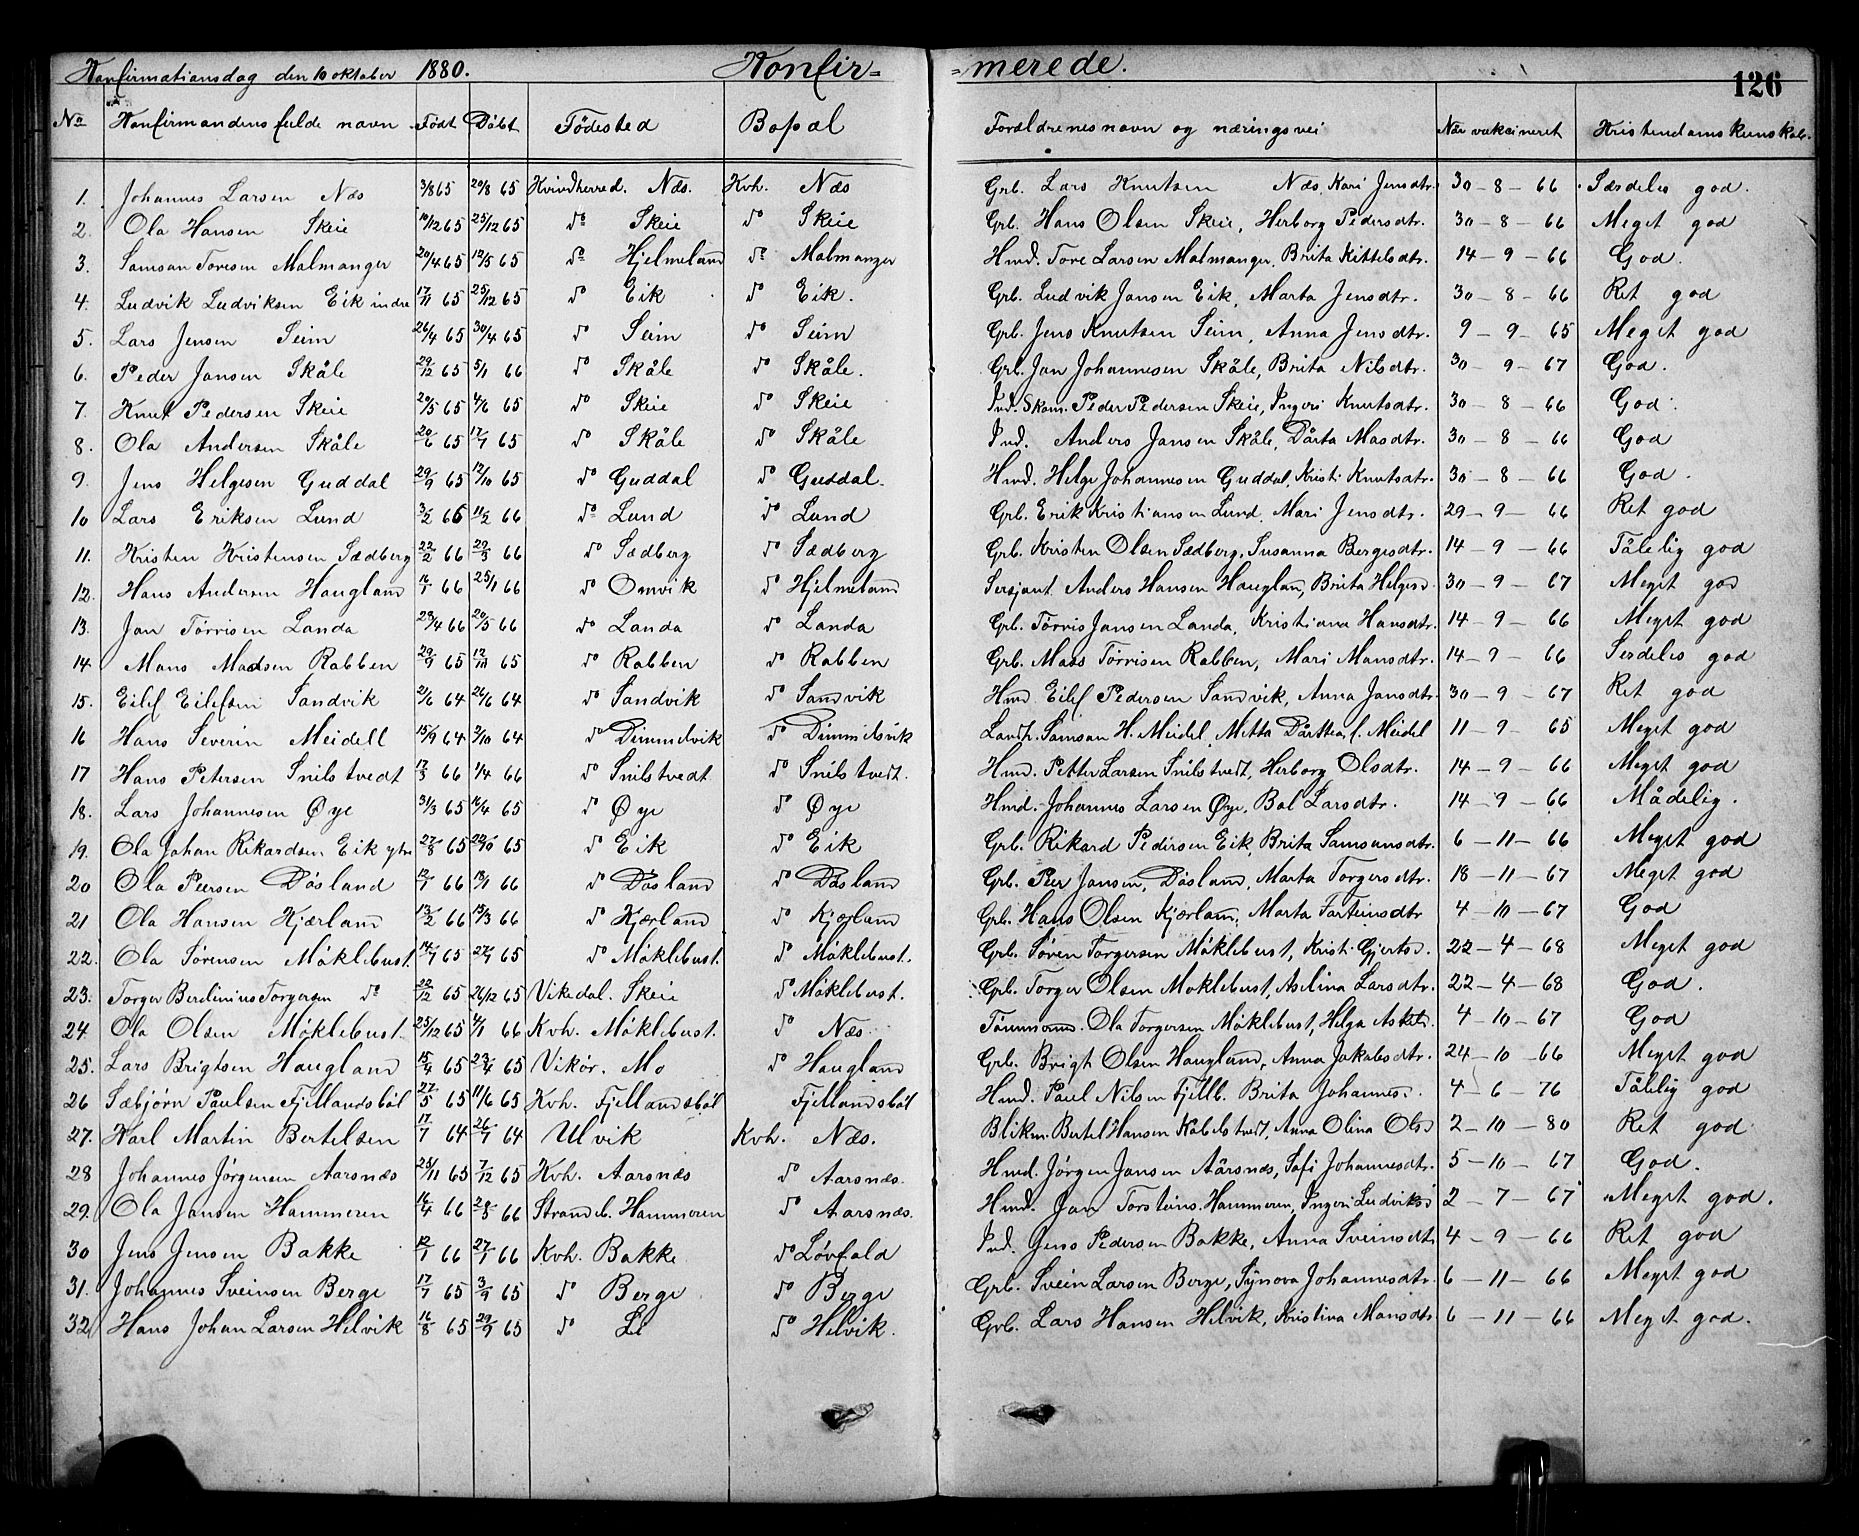 Konfirmationsdag den 10 oktober 1880. Konfir= =merede. 126
No Konfirmandens fulde navn Født Döbt Födested Bopæl Forældrenes navn og næringsvei Når vaksineret Kristendomskunskab.
1. Johannes Larsen Næs 3/8 65 20/8 65 Kvindherred. Næs. Kvh. Næs Grb. Lars Knutsen Næs, Kari Jensdtr. 30-8-66 Særdeles god.
2. Ola Hansen Skeie 10/12 65 25/12 65 do Skeie do Skeie Grb. Hans Olsen Skeie, Herborg Pedersdtr. 30-8-66 Meget god
3. Samson Toresen Malmanger 20/4 65 12/5 65 do Hjelmeland do Malmanger Hmd. Tore Larsen Malmanger, Brita Kittelsdtr. 14-9-66 God.
4. Ludvik Ludviksen Eik indre 17/11 65 25/12 65 do Eik do Eik. Grb. Ludvik Jansen Eik, Marta Jensdtr. 30-8-66 Ret god
5. Lars Jensen Seim 26/4 65 30/4 65 do Seim do Seim Grb. Jens Knutsen Seim, Anna Jensdtr. 9-9-65 Meget god
6. Peder Jansen Skåle 29/12 65 5/1 66 do Skåle do Skåle. Grb. Jan Johannesen Skåle, Brita Nilsdtr. 30-9-67 God.
7. Knut Pedersen Skeie 20/5 65 4/6 65 do Skeie do Skeie Ind. Skom. Peder Pedersen Skeie, Ingeri Knutsdtr. 30-8-66 God.
8. Ola Andersen Skåle 20/6 65 17/7 65 do Skåle do Skåle Ind. Anders Jansen Skåle, Dårta Masdtr. 30-8-66 God
9. Jens Helgesen Guddal 29/9 65 12/10 65 do Guddal do Guddal. Hmd. Helge Johannesen Guddal, Kristi Knutsdtr. 30-8-66 God.
10 Lars Eriksen Lund 3/2 66 11/2 66 do Lund do Lund Grb. Erik Kristiansen Lund, Mari Jensdtr. 29-9-66 Ret god
11. Kristen Kristensen Sædberg 22/2 66 29/3 66 do Sædberg do Sædberg Grb. Kristen Olsen Sædberg, Susanna Bergesdtr. 14-9-66 Tålelig god
12. Hans Andersen Haugland 16/1 66 25/1 66 do Omvik do Hjelmeland Sersjant Anders Hansen Haugland, Brita Helgesd 30-9-67 Meget god
13. Jan Tørrisen Landa 23/4 66 20/5 66 do Landa do Landa Grb. Tørris Jansen Landa, Kristiana Hansdtr. 14-9-66 Meget god
14. Mans Madsen Rabben 29/9 65 12/10 65 do Rabben do Rabben Grb. Mads Tørrisen Rabben, Mari Mansdtr. 14-9-66 Serdeles god
15. Eilef Eilefsen Sandvik 2/6 64 26/6 64 do Sandvik do Sandvik Hmd Eilef Pedersen Sandvik, Anna Jansdtr. 30-9-67 Ret god
16 Hans Severin Meidell 15/9 64 2/10 64 do Dimmelvik do Dimmelsvik Landh. Samson H. Meidel, Metta Dårthea f. Meidel 11-9-65 Meget god
17 Hans Petersen Snilstvedt 17/3 66 1/4 66 do Snilstvedt do Snilstvedt. Hmd. Petter Larsen Snilstvedt, Herborg Olsdtr. 14-9-66 Meget god
18. Lars Johannesen Øye 31/3 65 16/4 65 do Øye do Øye Hmd. Johannes Larsen Øye, Bol Larsdtr. 14-9-66 Mådelig.
19. Ola Johan Rikardsen Eik ytre 27/8 65 22/10 65 do Eik do Eik Grb. Rikard Pedersen Eik, Brita Samsonsdtr. 6-11-66 Meget god
20 Ola Peersen Døsland 12/1 66 13/1 66 do Døsland do Døsland Grb. Peer Jansen, Døsland, Marta Torgersdtr. 18-11-67 Meget god
21 Ola Hansen Kjærland 13/2 66 13/3 66 do Kjærland do Kjærland Grb. Hans Olsen Kjærland, Marta Torteinsdtr 4-10-67 God
22. Ola Sørensen Möklebust. 14/7 65 27/7 65 do Möklebust. do Möklebust. Grb. Søren Torgersen Möklebust, Kristi Gjertsd. 22-4-68 Meget god
23. Torger Berdinius Torgersen do 22/12 65 26/12 65 Vikedal. Skeie do Möklebust. Grb. Torger Olsen Moklebust, Aselina Larsdtr. 22-4-68 God.
24. Ola Olsen Möklebust. 25/12 65 4/1 66 Kvh. Möklebust. do Næs Tömmermd. Ola Torgersen Möklebust, Helga Askeld. 4-10-67 God
25. Lars Brigtsen Haugland 15/4 65 23/4 65 Vikør. Mo do Haugland Grb. Brigt Olsen Haugland, Anna Jakobsdtr. 24-10-66 Meget god
26 Sæbjörn Paulsen Fjellandsböl 27/5 65 11/6 65 Kvh. Fjellandsböl Fjellandsböl Hmd. Paul Nilsen Fjellb. Brita Johannesd. 4-6-76 Tålelig god
27. Karl Martin Bertelsen 17/7 64 26/7 64 Ulvik Kvh. Næs. Blikm. Bertel Hansen Kabelstvedt, Anna Olina Olsd 2-10-80 Ret god
28 Johannes Jørgensen Aarsnæs 25/11 65 7/12 65 Kvh. Aarsnæs do Aarsnæs. Hmd. Jörgen Jansen Aårsnæs, Sofi Johannesdtr. 5-10-67 God.
29. Ola Jansen Hammeren 16/4 66 28/5 66 Strandeb. Hammeren do Aarsnæs. Hmd. Jan Torsteins. Hammeren, Ingeri Ludviksd 2-7-67 Meget god.
30 Jens Jensen Bakke 12/1 66 27/1 66 Kvh. Bakke do Løvfald Ind. Jens Pedersen Bakke, Anna Sveinsdtr 4-9-66 Ret god
31. Johannes Sveinsen Berge 17/7 65 3/9 65 do Berge do Berge Grb. Svein Larsen Berge, Synova Johannesdtr. 6-11-66 Meget god
32. Hans Johan Larsen Helvik 16/8 65 29/9 65 do Li do Helvik. Grb. Lars Hansen Helvik, Kristina Mansdtr 6-11-66 Meget god.